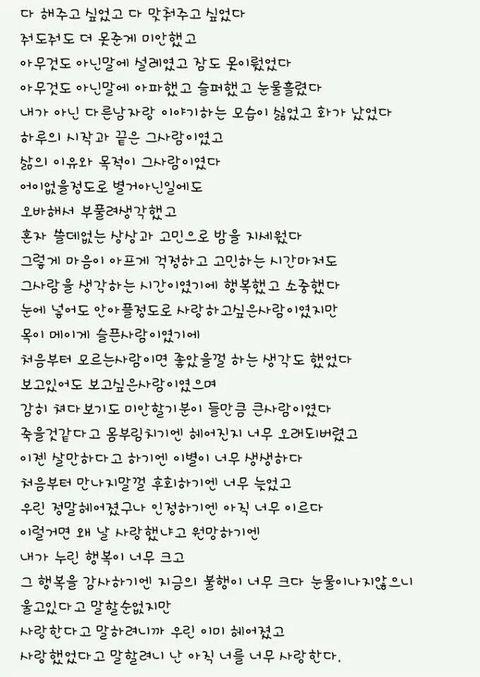 다 해주고 싶었고 다 맞춰주고 싶었다
줘도줘도 더 못준게 미안했고
아무것도 아닌말에 설레였고 잠도 못이뤘었다
아무것도 아닌말에 아파했고 슬퍼했고 눈물흘렸다
내가 아닌 다른남자랑 이야기하는 모습이 싫었고 화가 났었다
하루의 시작과 끝은 그사람이였고
삶의 이유와 목적이 그사람이였다
어이없을정도로 별거아닌일에도
오바해서 부풀려생각했고
혼자 쓸데없는 상상과 고민으로 밤을 지세웠다
그렇게 마음이 아프게 걱정하고 고민하는 시간마저도
그사람을 생각하는 시간이였기에 행복했고 소중했다
눈에 넣어도 안아플정도로 사랑하고싶은사람이였지만
목이 메이게 슬픈사람이였기에
처음부터 모르는사람이면 좋았을껄 하는 생각도 했었다
보고있어도 보고싶은사람이였으며
감히 쳐다보기도 미안할기분이 들만큼 큰사람이였다
죽을것같다고 몸부림치기엔 헤어진지 너무 오래되버렸고
이젠 살만하다고 하기엔 이별이 너무 생생하다
처음부터 만나지말껄 후회하기엔 너무 늦었고
우린 정말헤어졌구나 인정하기엔 아직 너무 이르다
이럴거면 왜 날 사랑했냐고 원망하기엔
내가 누린 행복이 너무 크고
그 행복을 감사하기엔 지금의 불행이 너무 크다 눈물이나지않으니
울고있다고 말할순없지만
사랑한다고 말하려니까 우린 이미 헤어졌고
사랑했었다고 말할려니 난 아직 너를 너무 사랑한다.